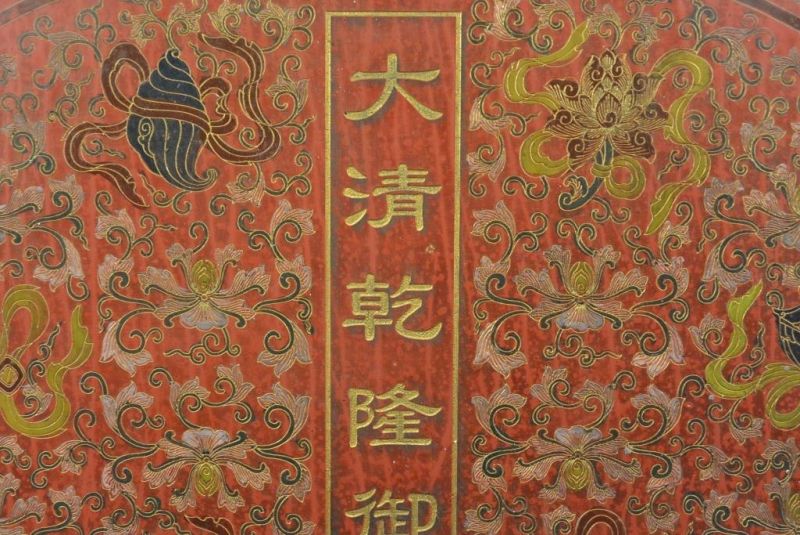 大清乾隆御